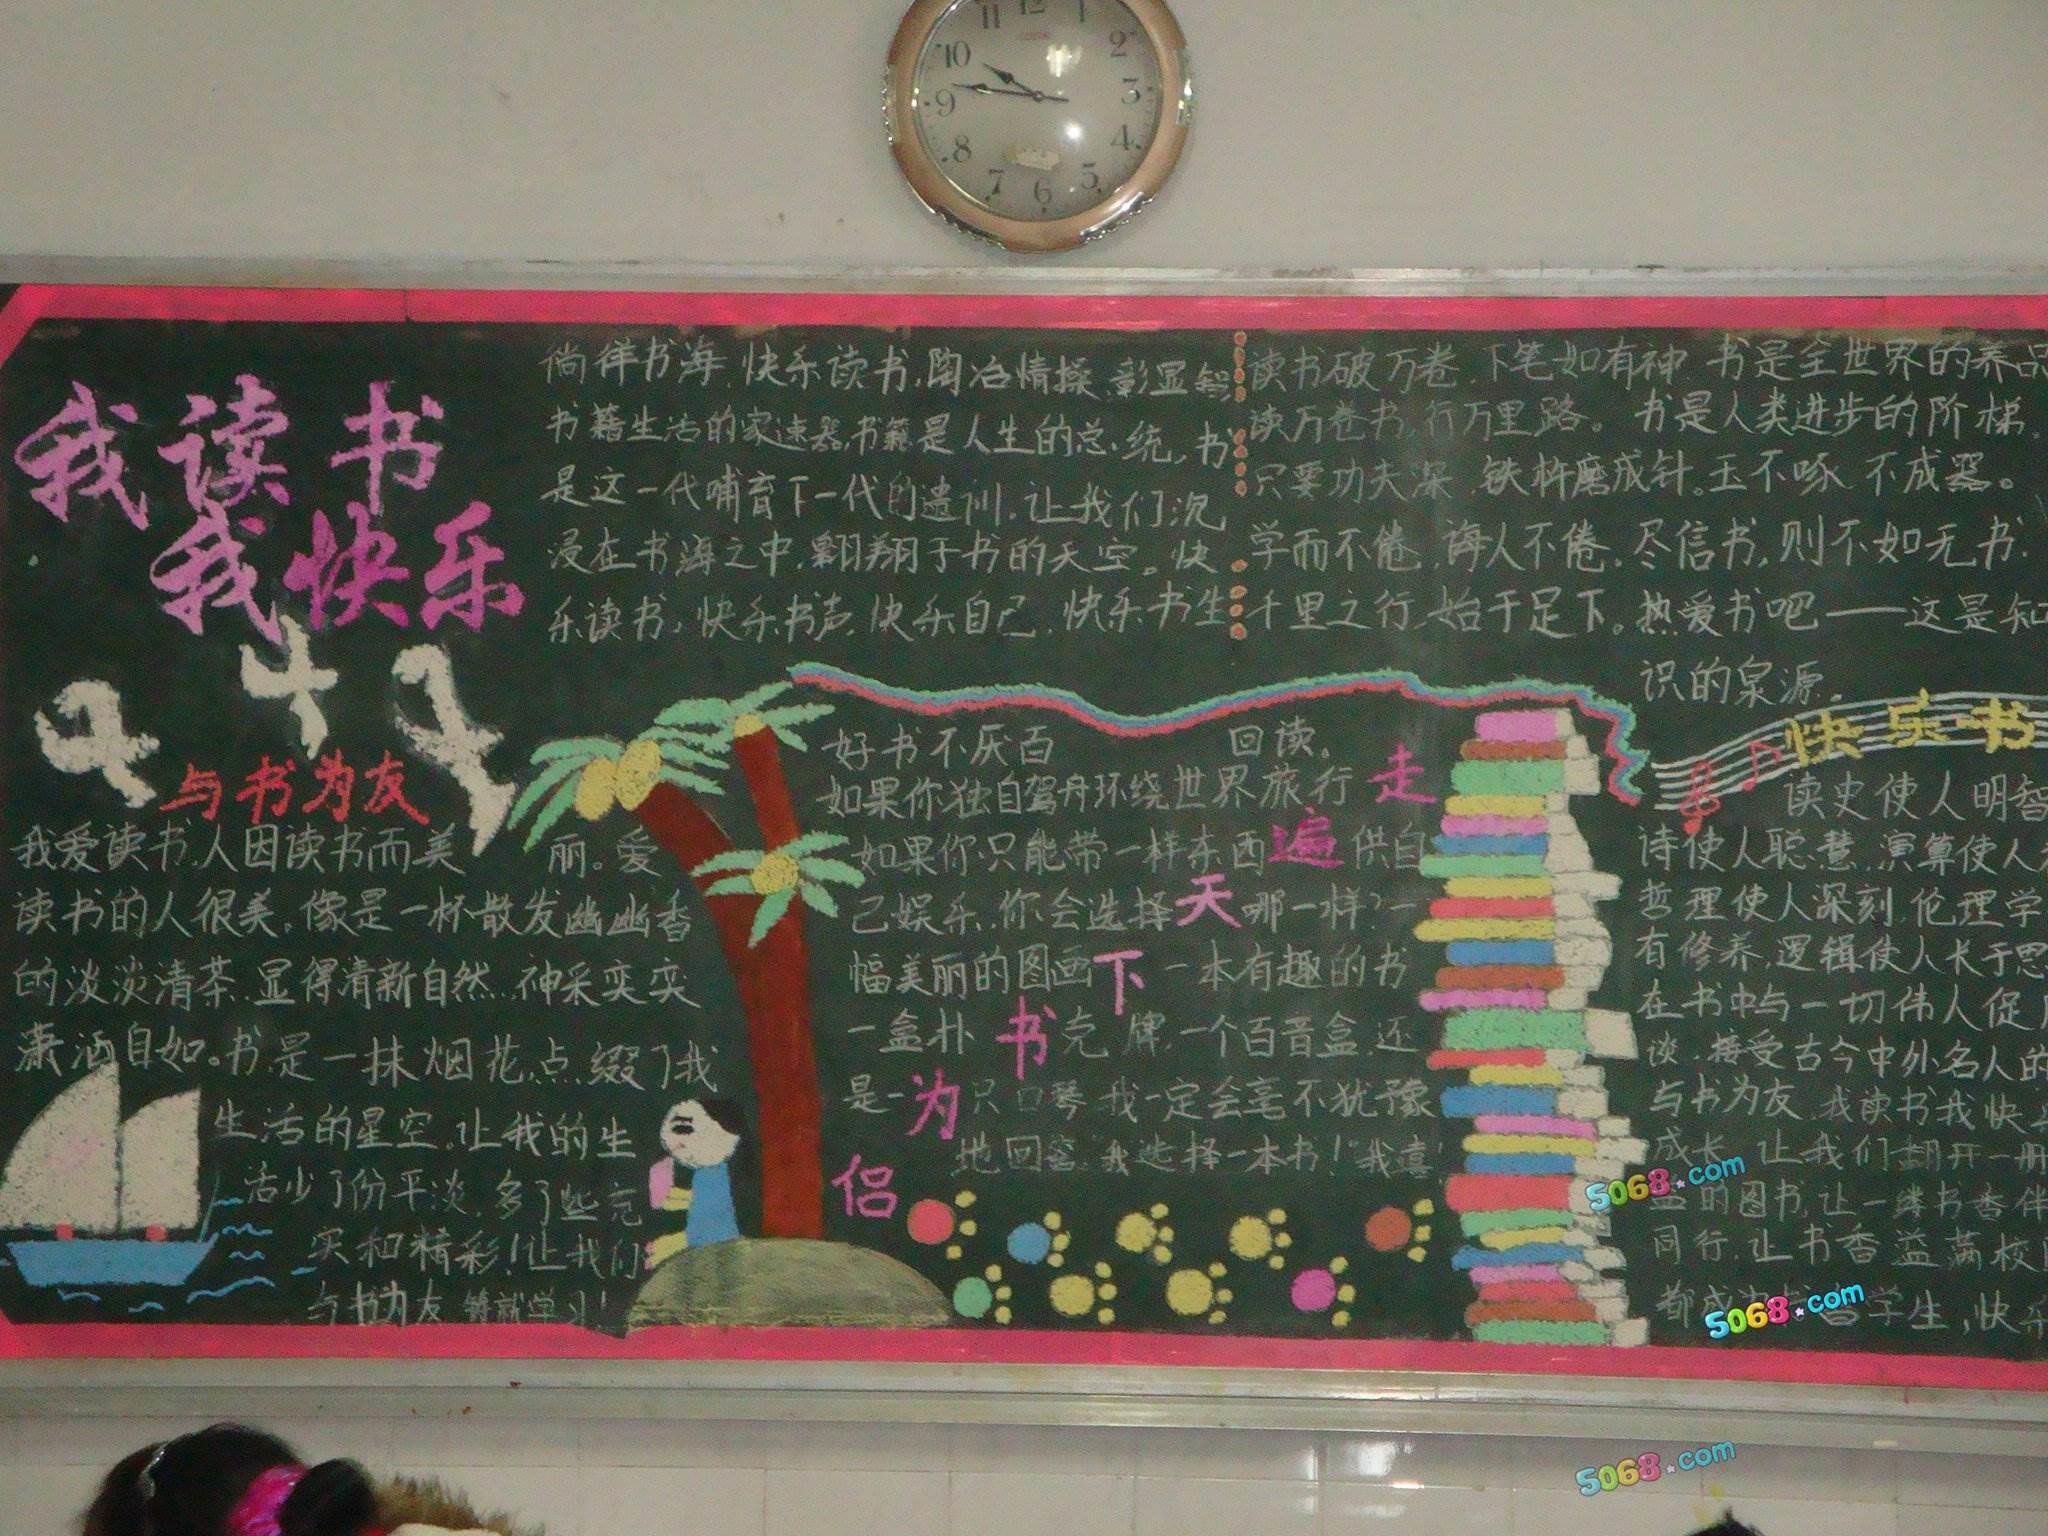 11 12 1
10 2
9 3
8 4
7 6 5
我读书
我快乐
徜徉书海，快乐读书，陶冶情操，彰显
书籍生活的家速器，书籍是人生的总统，书
是这一代哺育下一代的遗训，让我们沉
浸在书海之中，翱翔于书的天空。快
乐读书，快乐书声，快乐自己，快乐书生
读书破万卷，下笔如有神
读万卷书，行万里路。
只要功夫深，铁杵磨成针。玉不啄，不成器。
学而不倦，诲人不倦。尽信书，则不如无书.
千里之行，始于足下。
书是全世界的养品
书是人类进步的阶梯.
热爱书吧——这是知
识的泉源.
与书为友
我爱读书，人因读书而美丽。爱
读书的人很美，像是一杯散发幽幽香
的淡淡清茶，显得清新自然，神采奕奕
潇洒自如。书是一抹烟花，点缀了我
生活的星空。让我的生
活少了份平淡，多了些充
实和精彩！让我们
与书为友，铸就学习！
好书不厌百回读。
如果你独自驾舟环绕世界旅行
如果你只能带一样东西供自
己娱乐，你会选择哪一样？一
幅美丽的图画 一本有趣的书
一盒扑克牌，一个百音盒，还
是一只口琴 我一定会毫不犹豫
地回答"我选择一本书！"我喜
走遍天下书为侣
快乐书
读史使人明智
诗使人聪慧，演算使人
哲理使人深刻，伦理学
有修养，逻辑使人长于思
在书中与一切伟人促
谈，接受古今中外名人的
与书为友，我读书我快
成长，让我们翻开一册
的图书，让一缕书香伴
同行，让书香溢满校
都成 学生，快乐
5068.com
5068.com
5068.com